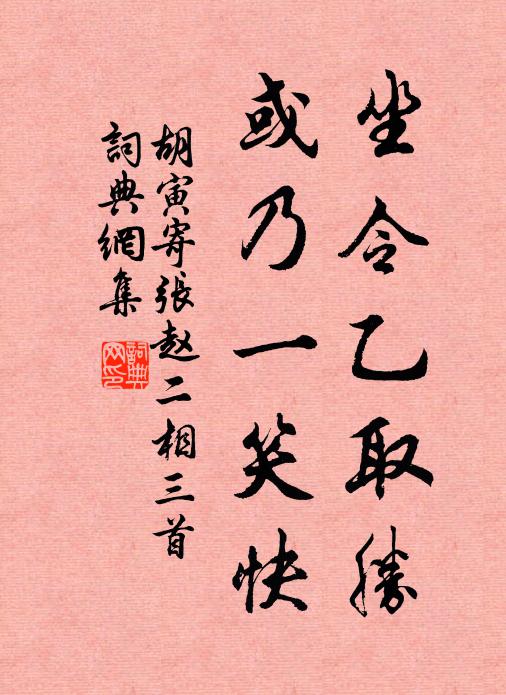 坐令乙取勝
或乃一笑快
胡寅寄張赵二相三首
詞典網集
詞典网印